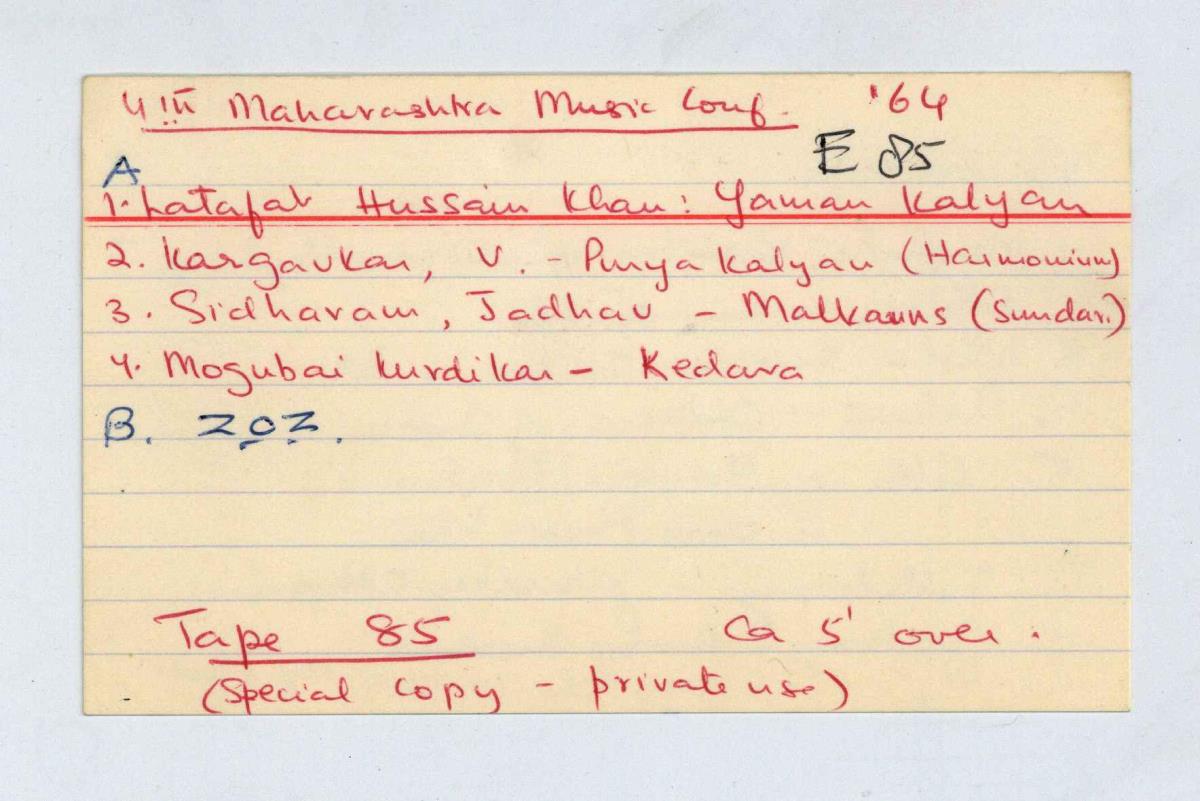 4th Maharashtra Music Conf. '64
E 85
A
1. Latafat Hussain Khan: Yaman Kalyan
2. Kargavkar, V. - Purya Kalyan (Harmonium)
3. Sidharam, Jadhav - Malkauns (Sundari)
4. Mogubai Kurdikar - Kedara
B.
Tape 85 Ca 5' over.
(Special Copy - private use)